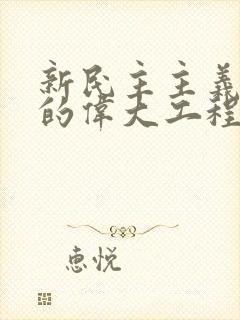 新民主主義
的偉大工程
惠悦